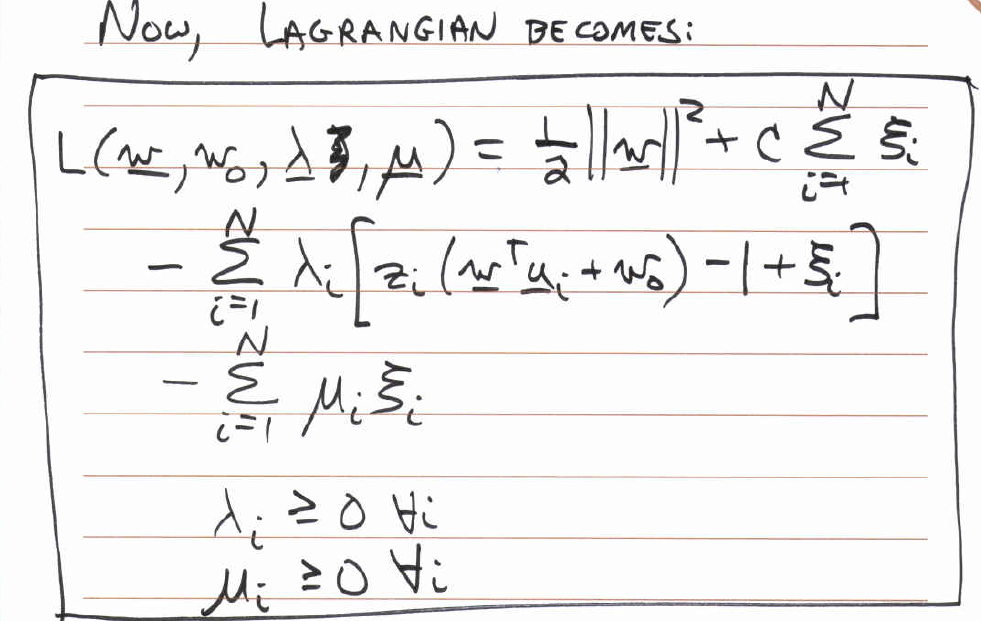 Now, LAGRANGIAN BECOMES:
L(w̲, w₀, λ̲ ξ, μ̲) = ½‖w̲‖² + C ∑ᵢ₌₁ᴺ ξᵢ
− ∑ᵢ₌₁ᴺ λᵢ [zᵢ (w̲ᵀu̲ᵢ + w₀) − 1 + ξᵢ]
− ∑ᵢ₌₁ᴺ μᵢ ξᵢ
λᵢ ≥ 0 ∀i
μᵢ ≥ 0 ∀i